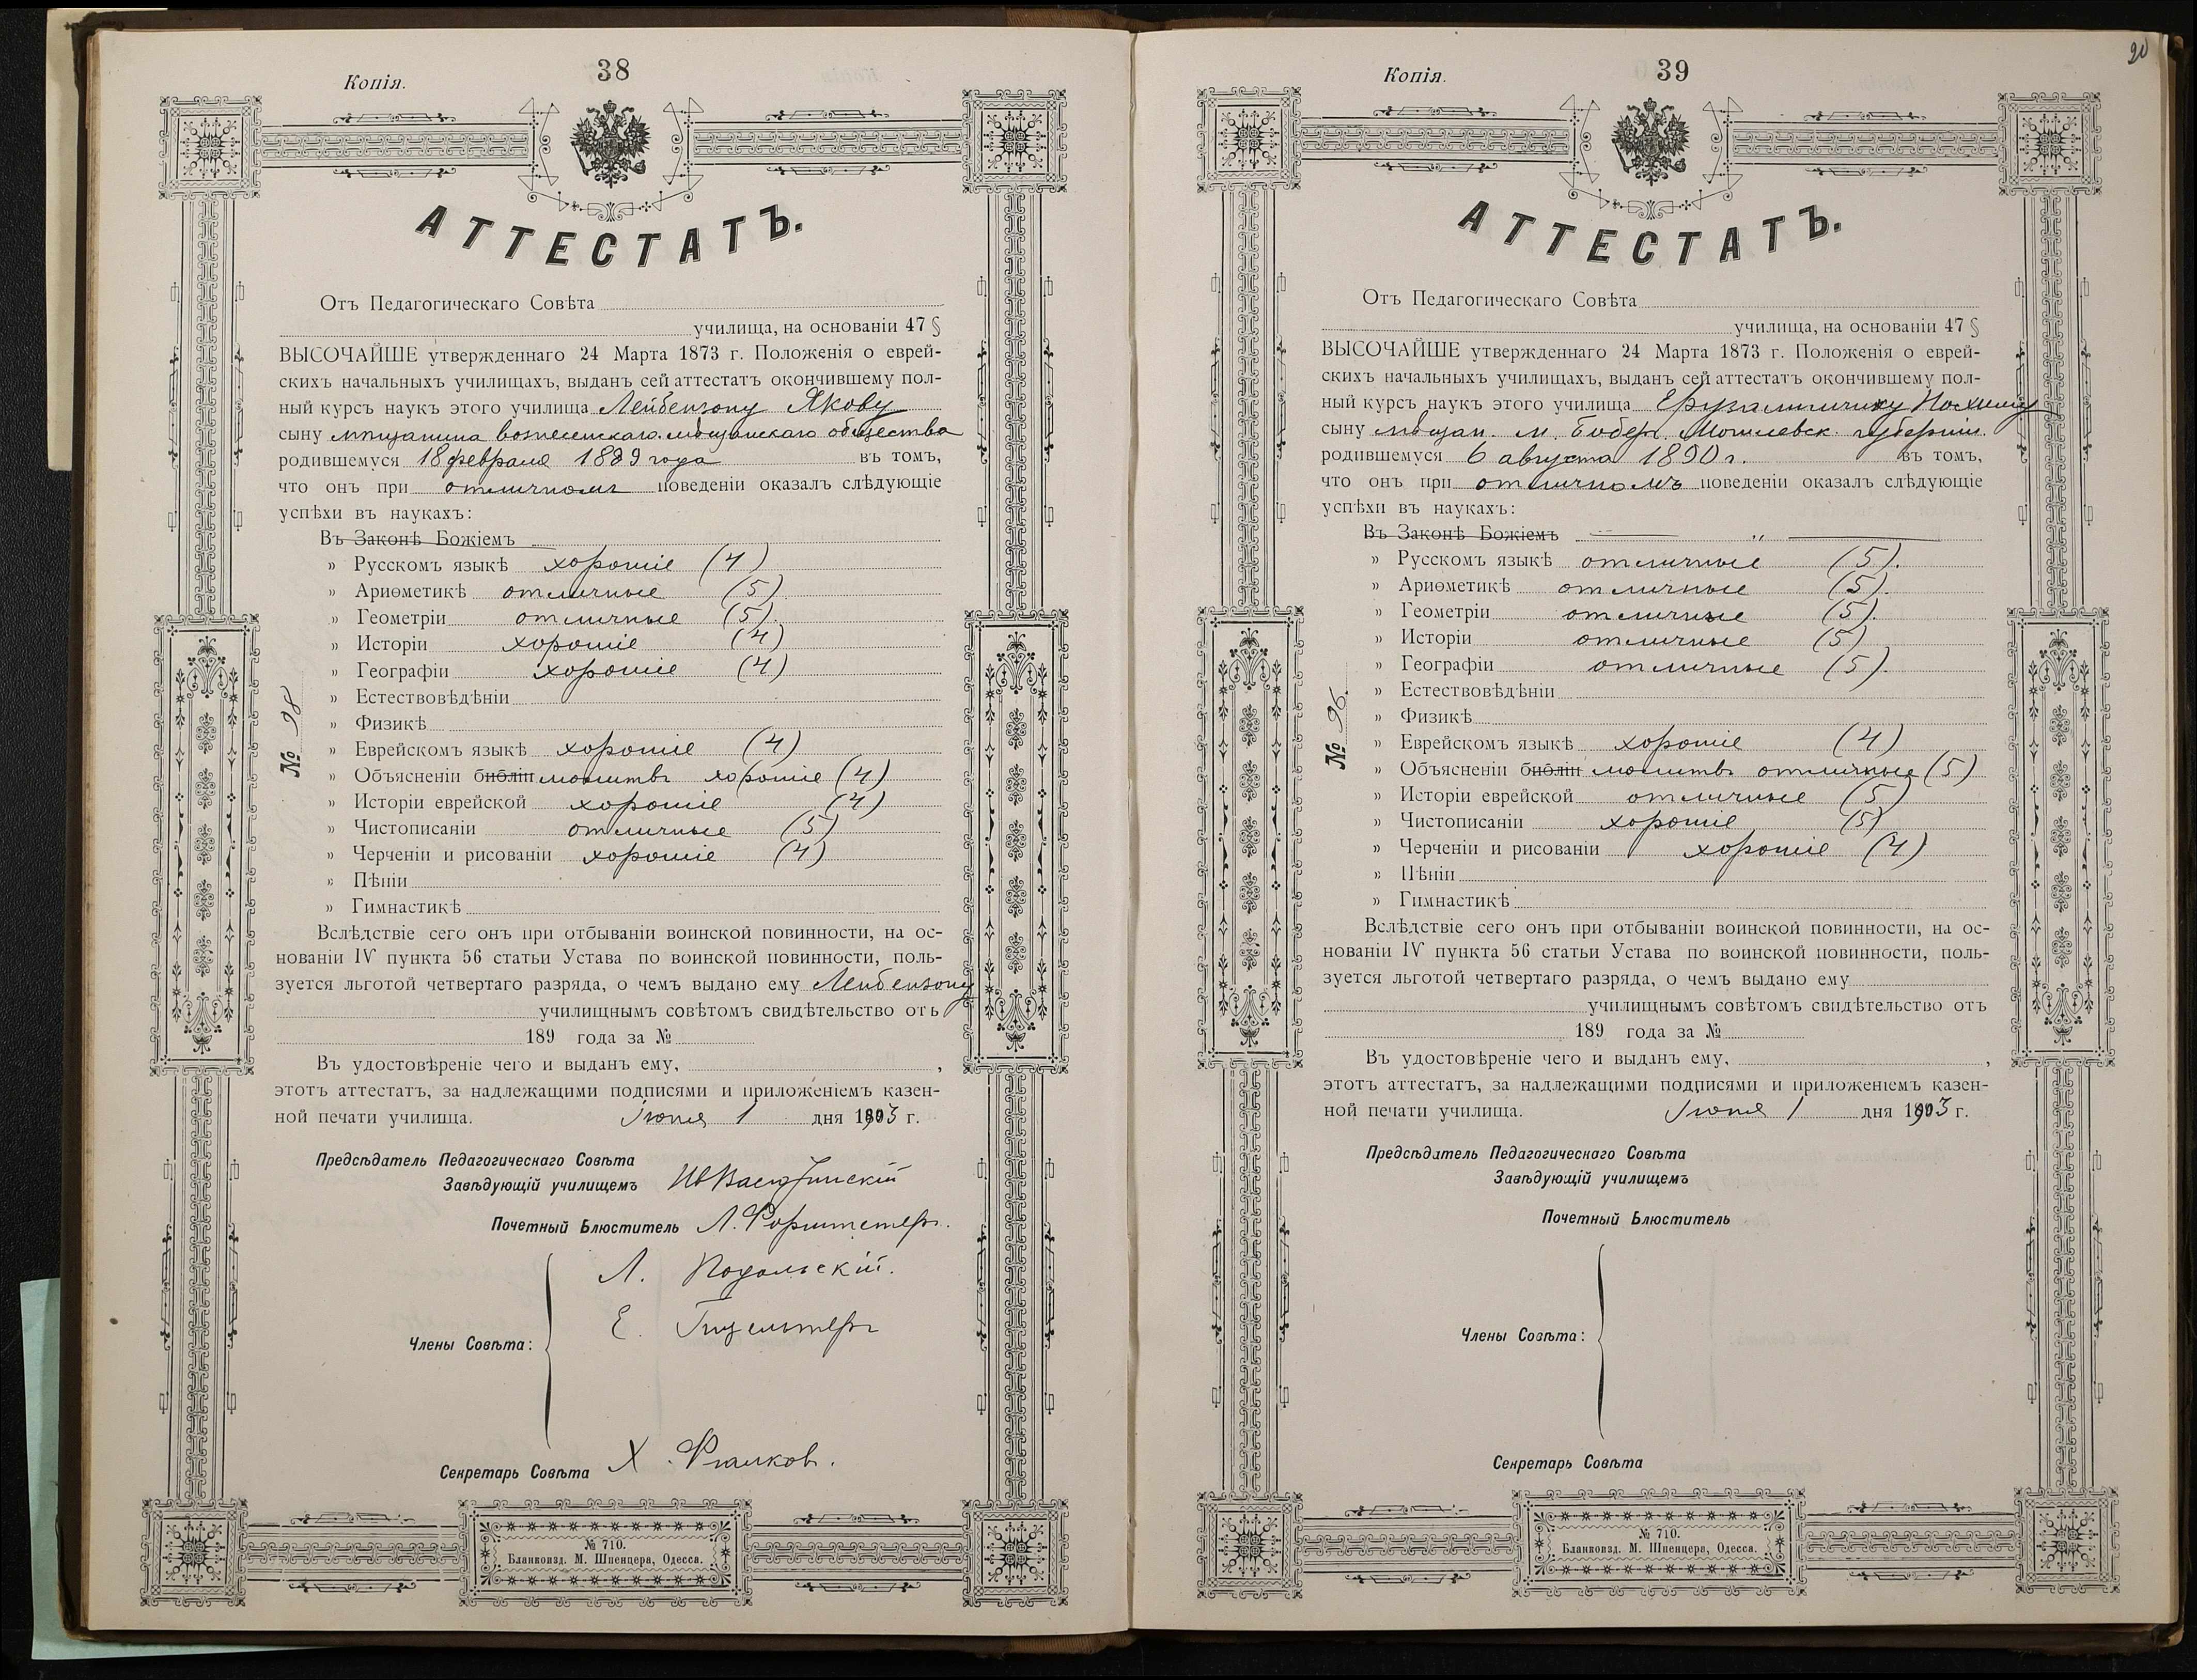 Копія.
38
АТТЕСТАТЪ.
Отъ Педагогическаго Совѣта
училища, на основаніи 47 §
ВЫСОЧАЙШЕ утвержденнаго 24 Марта 1873 г. Положенія о еврей-
скихъ начальныхъ училищахъ, выданъ сей аттестатъ окончившему пол-
ный курсъ наукъ этого училища Лейбензону Якову
сыну мѣщанина вознесенскаго мѣщанскаго общества
родившемуся 18 февраля 1889 года въ томъ,
что онъ при отличномъ поведеніи оказалъ слѣдующіе
успѣхи въ наукахъ:
Въ Законѣ Божіемъ
» Русскомъ языкѣ хорошіе (4)
» Ариѳметикѣ отличные (5).
» Геометріи отличные (5).
» Исторіи хорошіе (4)
» Географіи хорошіе (4)
» Естествовѣдѣніи
» Физикѣ
» Еврейскомъ языкѣ хорошіе (4)
» Объясненіи библіи молитвъ хорошіе (4)
» Исторіи еврейской хорошіе (4)
» Чистописаніи отличные (5)
» Черченіи и рисованіи хорошіе (4)
» Пѣніи
» Гимнастикѣ
№ 98
Вслѣдствіе сего онъ при отбываніи воинской повинности, на ос-
нованіи IV пункта 56 статьи Устава по воинской повинности, поль-
зуется льготой четвертаго разряда, о чемъ выдано ему Лейбензону
училищнымъ совѣтомъ свидѣтельство отъ
189 года за №
Въ удостовѣреніе чего и выданъ ему, ,
этотъ аттестатъ, за надлежащими подписями и приложеніемъ казен-
ной печати училища. Іюня 1 дня 1903 г.
Предсѣдатель Педагогическаго Совѣта
Завѣдующій училищемъ
Почетный Блюститель Л. Форштетеръ.
Л. Подольскій.
Е.
Члены Совѣта:
Секретарь Совѣта Х. Фіалковъ.
№ 710.
Бланкоизд. М. Шпенцера, Одесса.
20
Копія.
39
АТТЕСТАТЪ.
Отъ Педагогическаго Совѣта
училища, на основаніи 47 §
ВЫСОЧАЙШЕ утвержденнаго 24 Марта 1873 г. Положенія о еврей-
скихъ начальныхъ училищахъ, выданъ сей аттестатъ окончившему пол-
ный курсъ наукъ этого училища Ерузалимчику
сыну мѣщан. м. Бобер. Могилевск. губерніи.
родившемуся 6 августа 1890 г. въ томъ,
что онъ при отличномъ поведеніи оказалъ слѣдующіе
успѣхи въ наукахъ:
Въ Законѣ Божіемъ — „ —
» Русскомъ языкѣ отличные (5).
» Ариѳметикѣ отличные (5).
» Геометріи отличные (5).
» Исторіи отличные (5)
» Географіи отличные (5).
» Естествовѣдѣніи
» Физикѣ
» Еврейскомъ языкѣ хорошіе (4)
» Объясненіи библіи молитвъ отличные (5)
» Исторіи еврейской отличные (5)
» Чистописаніи хорошіе (5)
» Черченіи и рисованіи хорошіе (4)
» Пѣніи
» Гимнастикѣ
№ 96.
Вслѣдствіе сего онъ при отбываніи воинской повинности, на ос-
нованіи IV пункта 56 статьи Устава по воинской повинности, поль-
зуется льготой четвертаго разряда, о чемъ выдано ему
училищнымъ совѣтомъ свидѣтельство отъ
189 года за №
Въ удостовѣреніе чего и выданъ ему, ,
этотъ аттестатъ, за надлежащими подписями и приложеніемъ казен-
ной печати училища. Іюня 1 дня 1903 г.
Предсѣдатель Педагогическаго Совѣта
Завѣдующій училищемъ
Почетный Блюститель
Члены Совѣта:
Секретарь Совѣта
№ 710.
Бланкоизд. М. Шпенцера, Одесса.